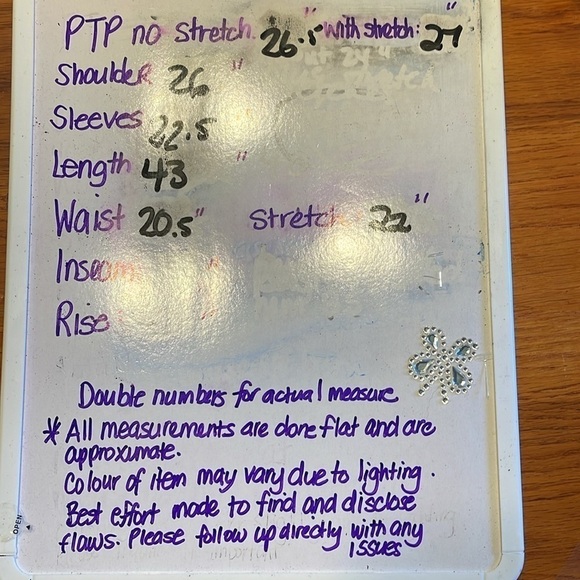 PTP no stretch. 26.5" with stretch: 27"
Shoulder 26"
Sleeves 22.5
Length 43"
Waist 20.5" Stretch 22"
Inseam "
Rise "
Double numbers for actual measure
* All measurements are done flat and are
approximate.
Colour of item may vary due to lighting.
Best effort made to find and disclose
flaws. Please follow up directly with any
issues
OPEN